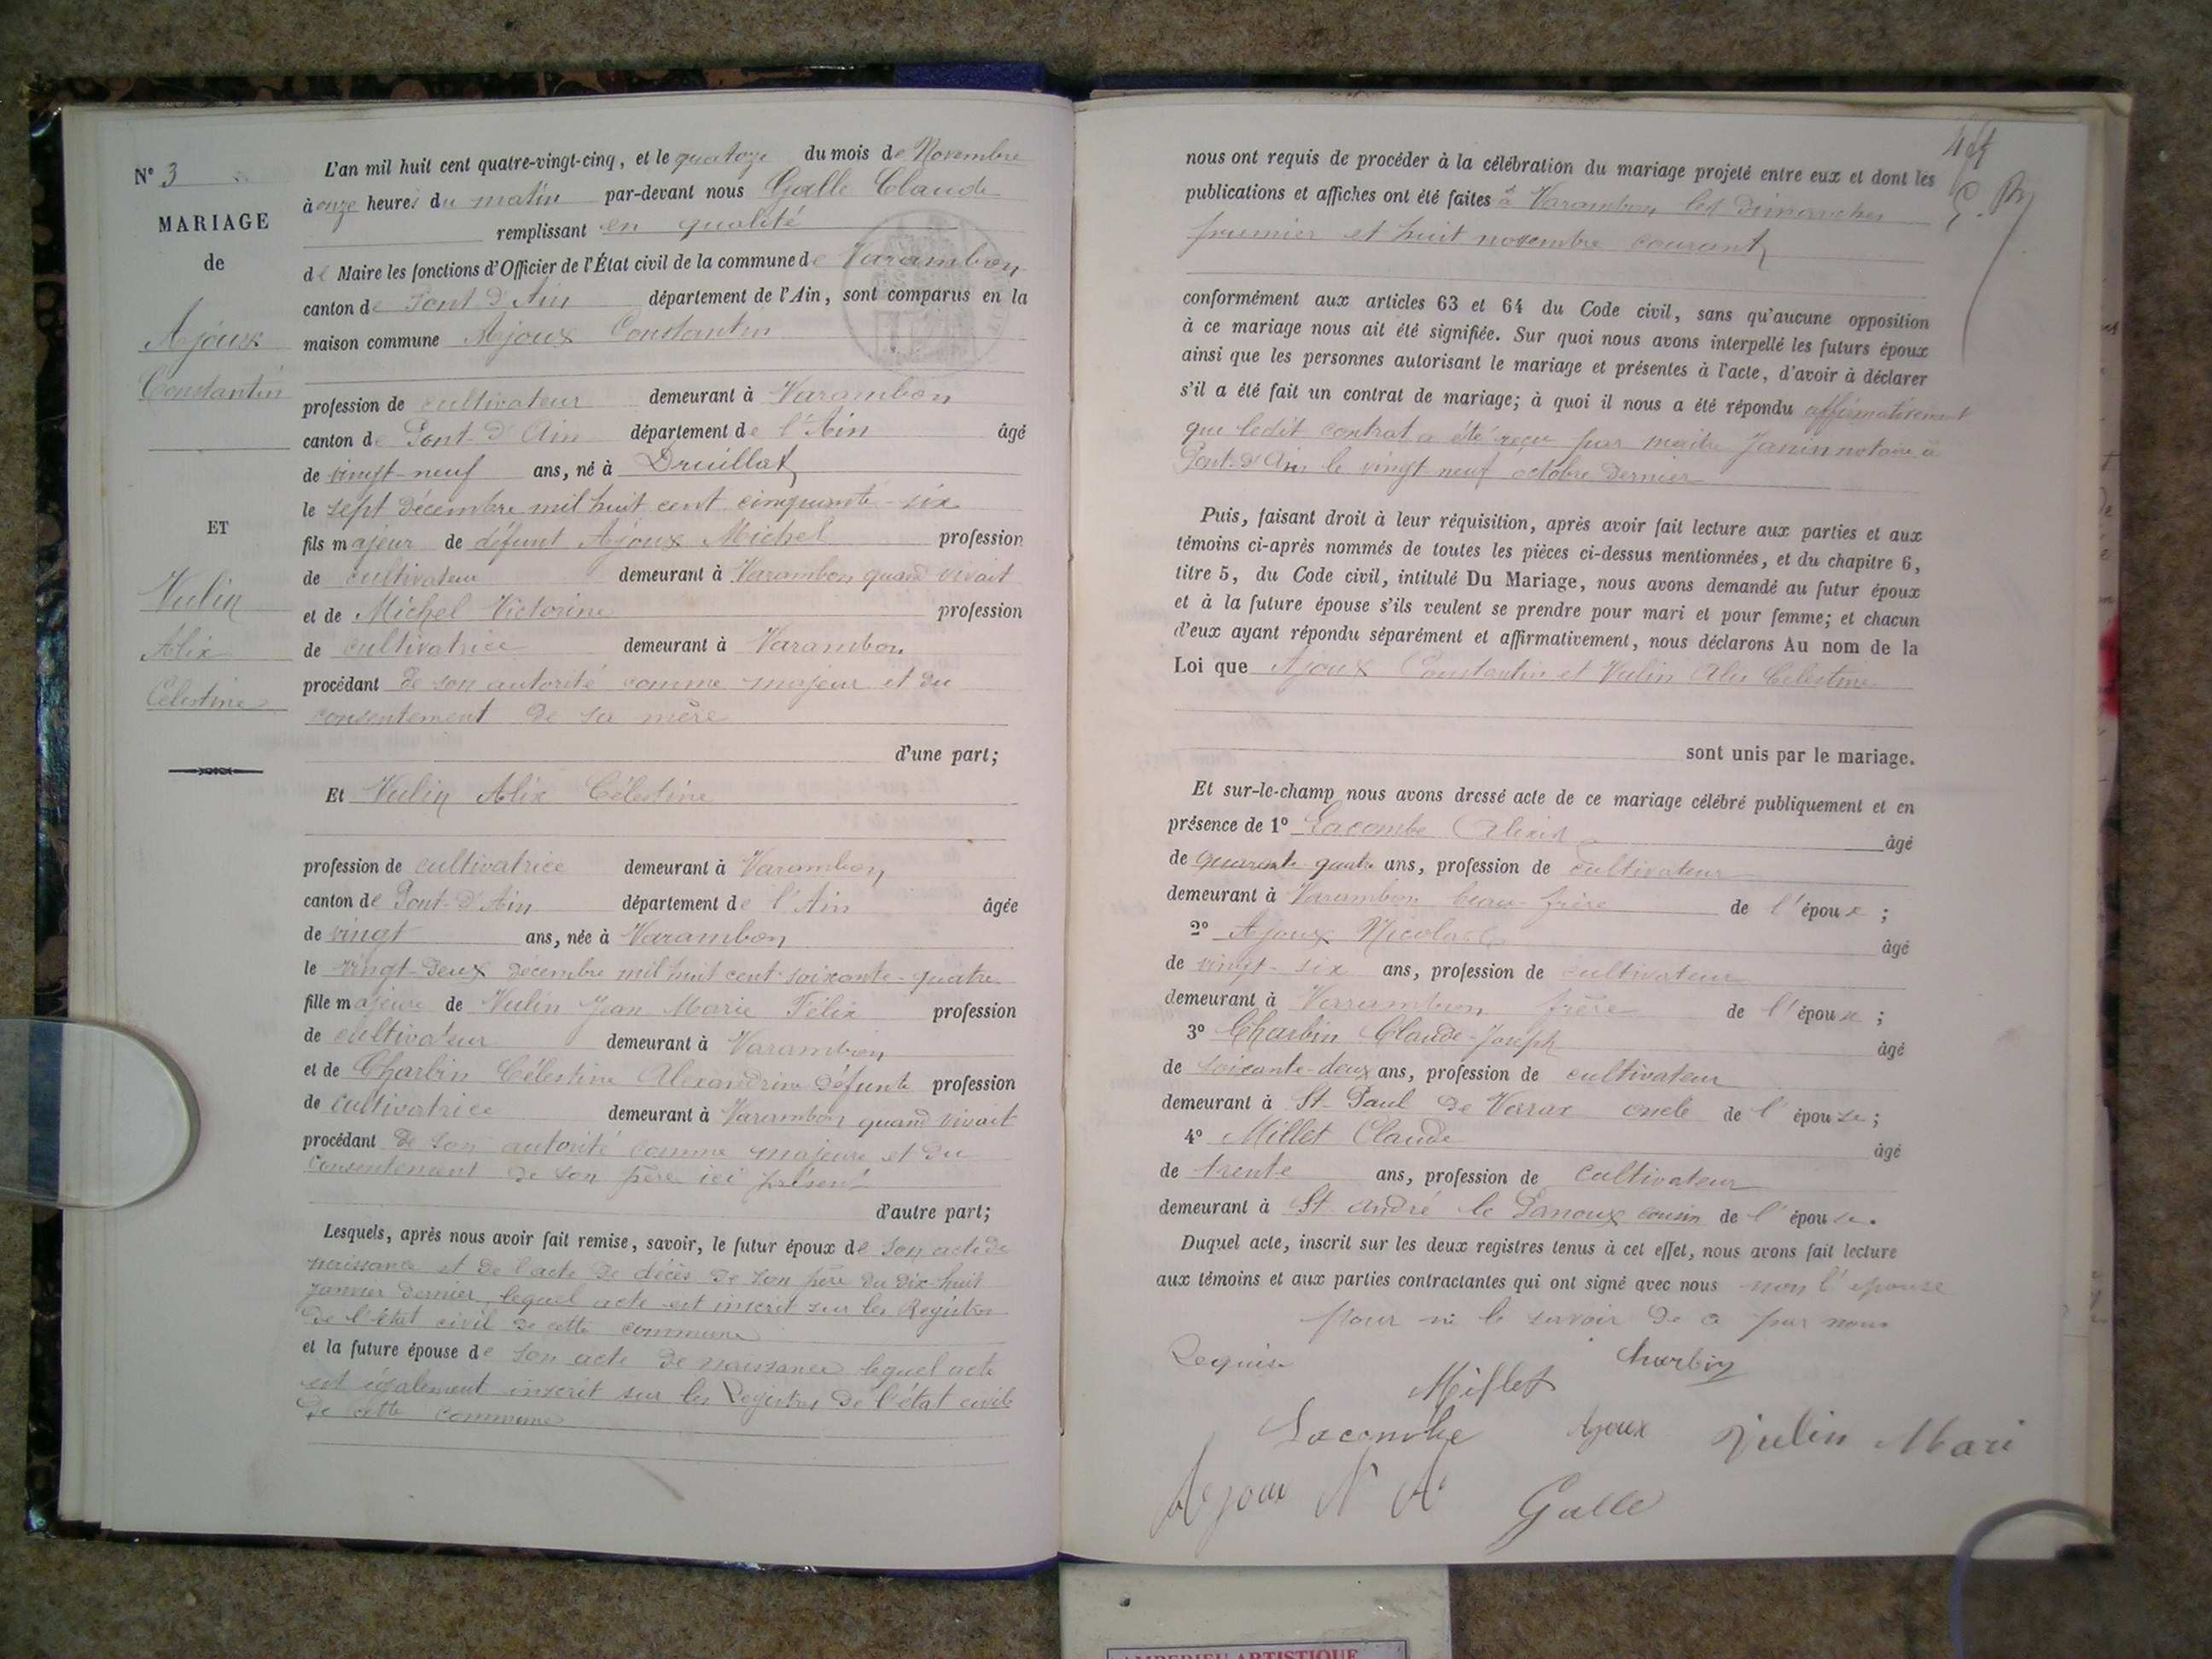 N° 3
MARIAGE
de
Ajoux
Constantin
ET
Vulin
Alix
Célestine
L'an mil huit cent quatre-vingt-cinq, et le quatoze du mois de Novembre
à onze heures du matin par-devant nous Galle Claude
remplissant en qualité
de Maire les fonctions d'Officier de l'État civil de la commune de Varambon
canton de Pont-d'Ain département de l'Ain, sont comparus en la
maison commune Ajoux Constantin
profession de cultivateur demeurant à Varambon
canton de Pont-d'Ain département de l'Ain âgé
de vingt-neuf ans, né à Druillat
le sept décembre mil huit cent cinquante-six
fils majeur de défunt Ajoux Michel profession
de cultivateur demeurant à Varambon quand vivait
et de Michel Victorine profession
de cultivatrice demeurant à Varambon
procédant de son autorité comme majeur et du
consentement de sa mère
d'une part;
Et Vulin Alix Célestine
profession de cultivatrice demeurant à Varambon
canton de Pont-d'Ain département de l'Ain âgée
de vingt ans, née à Varambon
le vingt-deux décembre mil huit cent soixante-quatre
fille majeure de Vulin Jean Marie Félix profession
de cultivateur demeurant à Varambon
et de Charbin Célestine Alexandrine défunte profession
de cultivatrice demeurant à Varambon quand vivait
procédant de son autorité comme majeure et du
consentement de son père ici présent
d'autre part;
Lesquels, après nous avoir fait remise, savoir, le futur époux de son acte de
naissance et de l'acte de décès de son père du dix-huit
janvier dernier, lequel acte est inscrit sur les Registres
de l'état civil de cette commune
et la future épouse de son acte de naissance lequel acte
est également inscrit sur les Registres de l'état civil
de cette commune
nous ont requis de procéder à la célébration du mariage projeté entre eux et dont les
publications et affiches ont été faites à Varambon les dimanches
premier et huit novembre courant
conformément aux articles 63 et 64 du Code civil, sans qu'aucune opposition
à ce mariage nous ait été signifiée. Sur quoi nous avons interpellé les futurs époux
ainsi que les personnes autorisant le mariage et présentes à l'acte, d'avoir à déclarer
s'il a été fait un contrat de mariage; à quoi il nous a été répondu affirmativement
que ledit contrat a été reçu par maître Janin notaire à
Pont-d'Ain le vingt neuf octobre dernier
Puis, faisant droit à leur réquisition, après avoir fait lecture aux parties et aux
témoins ci-après nommés de toutes les pièces ci-dessus mentionnées, et du chapitre 6,
titre 5, du Code civil, intitulé Du Mariage, nous avons demandé au futur époux
et à la future épouse s'ils veulent se prendre pour mari et pour femme; et chacun
d'eux ayant répondu séparément et affirmativement, nous déclarons Au nom de la
Loi que Ajoux Constantin et Vulin Alix Célestine
sont unis par le mariage.
Et sur-le-champ nous avons dressé acte de ce mariage célébré publiquement et en
présence de 1° Lacombe Alexis âgé
de quarante quatre ans, profession de cultivateur
demeurant à Varambon beau-frère de l'époux ;
2° Ajoux Nicolas âgé
de vingt-six ans, profession de cultivateur
demeurant à Varrambon frère de l'époux ;
3° Charbin Claude-Joseph âgé
de soixante-deux ans, profession de cultivateur
demeurant à St-Paul de Varrax oncle de l'épouse ;
4° Millet Claude âgé
de trente ans, profession de cultivateur
demeurant à St André le Panoux cousin de l'épouse.
Duquel acte, inscrit sur les deux registres tenus à cet effet, nous avons fait lecture
aux témoins et aux parties contractantes qui ont signé avec nous non l'épouse
pour ne le savoir de ce par nous
Requise
Charbin
Millet
Lacombe Ajoux Vulin Mari
Ajoux N
Galle